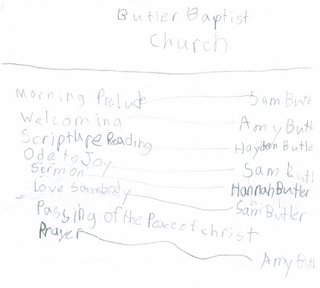 Butler Baptist
Church
Morning Prelude Sam Butl
Welcoming Amy Butl
Scripture Reading Hayden Butle
Ode to Joy Sam Butl
Sermon Hannah Butler
Love Somebody Sam Butler
Passing of the Peace of christ
Prayer Amy Butl